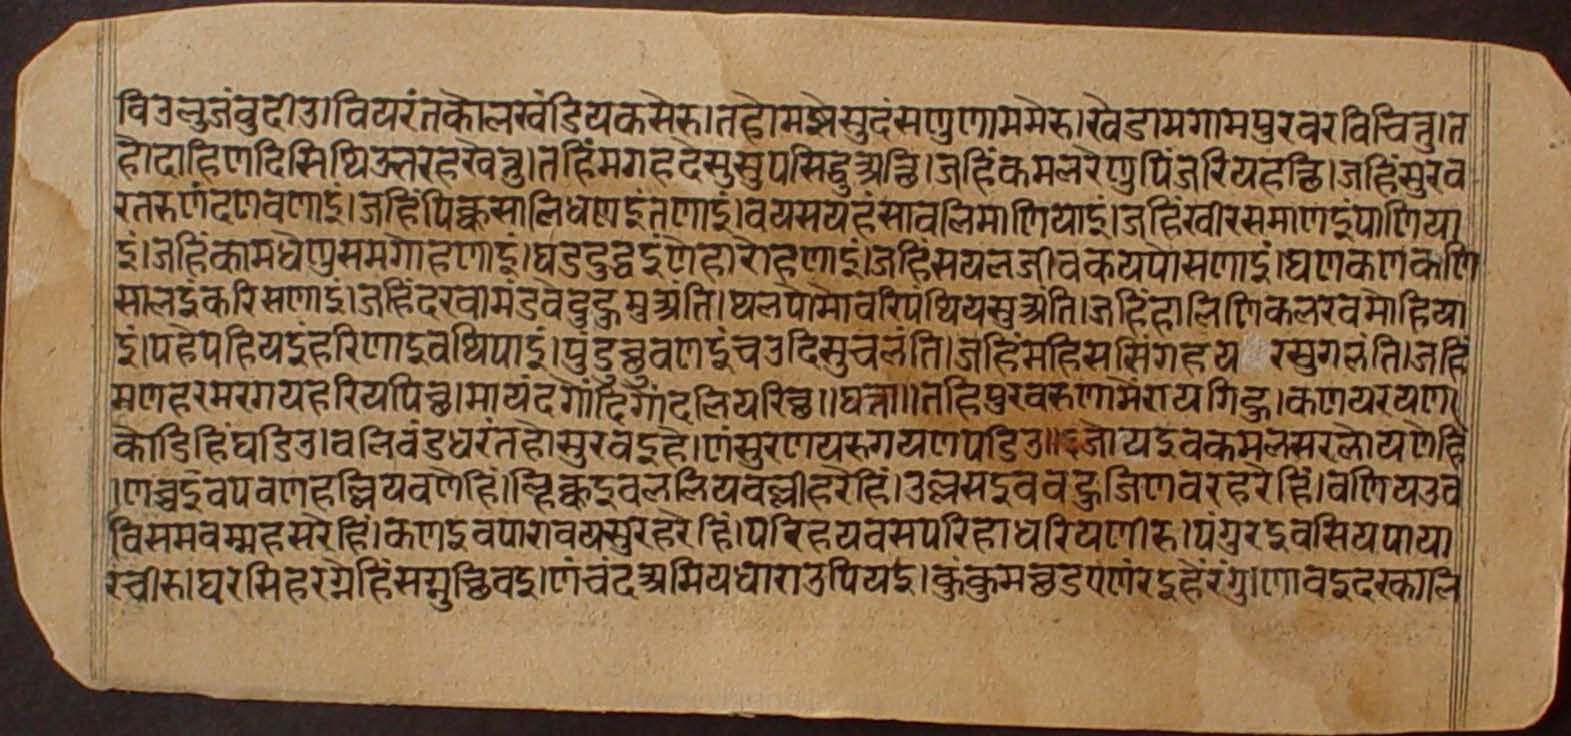 विउलुजंवुदीउ।वियरंतकालखंडियकसेरु।तहोमझेसुदंसणुणाममेरु।खेडामगामपुरवरविचित्तु।त
होदाहिणदिसिथिउभरहखेत्तु।तहिंमगहदेसुसुपसिद्धुअच्छि।जहिंकमलरेणुपिंजरियहच्छि।जहिंसुरव
रतरुणंदणवणाइं।जहिंपिक्कसालिधणइंतणाइं।वयसयहंसावलिमाणियाइं।जहिंखीरसमाणइंपाणिया
इं।जहिंकामधेणुसमगोहणाइं।घडदुद्धइंणेहारोहणाइं।जहिंसयलजीवकयपोसणाइं।घणकणकणि
सालइंकरिसणाइं।जहिंदरवामंडवेदुहुमुअंति।थलपोमोवरिपंथियसुअंति।जहिंहालिणिकलरवमोहिया
इं।पहेपहियइंहरिणाइवथिपाइं।पुंडुच्छुवणइंचउदिसुचलंति।जहिंमहिससिंगहय रसुगलंति।जहिं
मणहरमरगयहरियपिच्छ।मायंदगोंदिगोंदलियरिच्छ॥घत्ता॥तहिपुरवरुणामेंरायगिहु।कणयरयण
कोडिहिंघडिउ।वलिवंडधरंतहोसुरवइहे।णंसुरणयरुगयणपडिउ॥६जोयइवकमलसरलोयणेहिं
।णच्चइवपवणहल्लियवणेहिं।ल्हिक्कइवललियवल्लीहरेहिं।उल्लसइववहुजिणवरहरेहिं।वणियउव
विसमवम्महसरेहिं।कणइवपारावयसुरहरेहिं।परिहयवसपरिहाधरियणीरु।पंगुरइवसियपाया
रचीरु।घरसिहरग्गेहिंसग्गुच्छिवइ।णंचंदअमियधाराउपियइ।कुंकुमच्छडएणंरइहेरंगु।णावइदरकालि